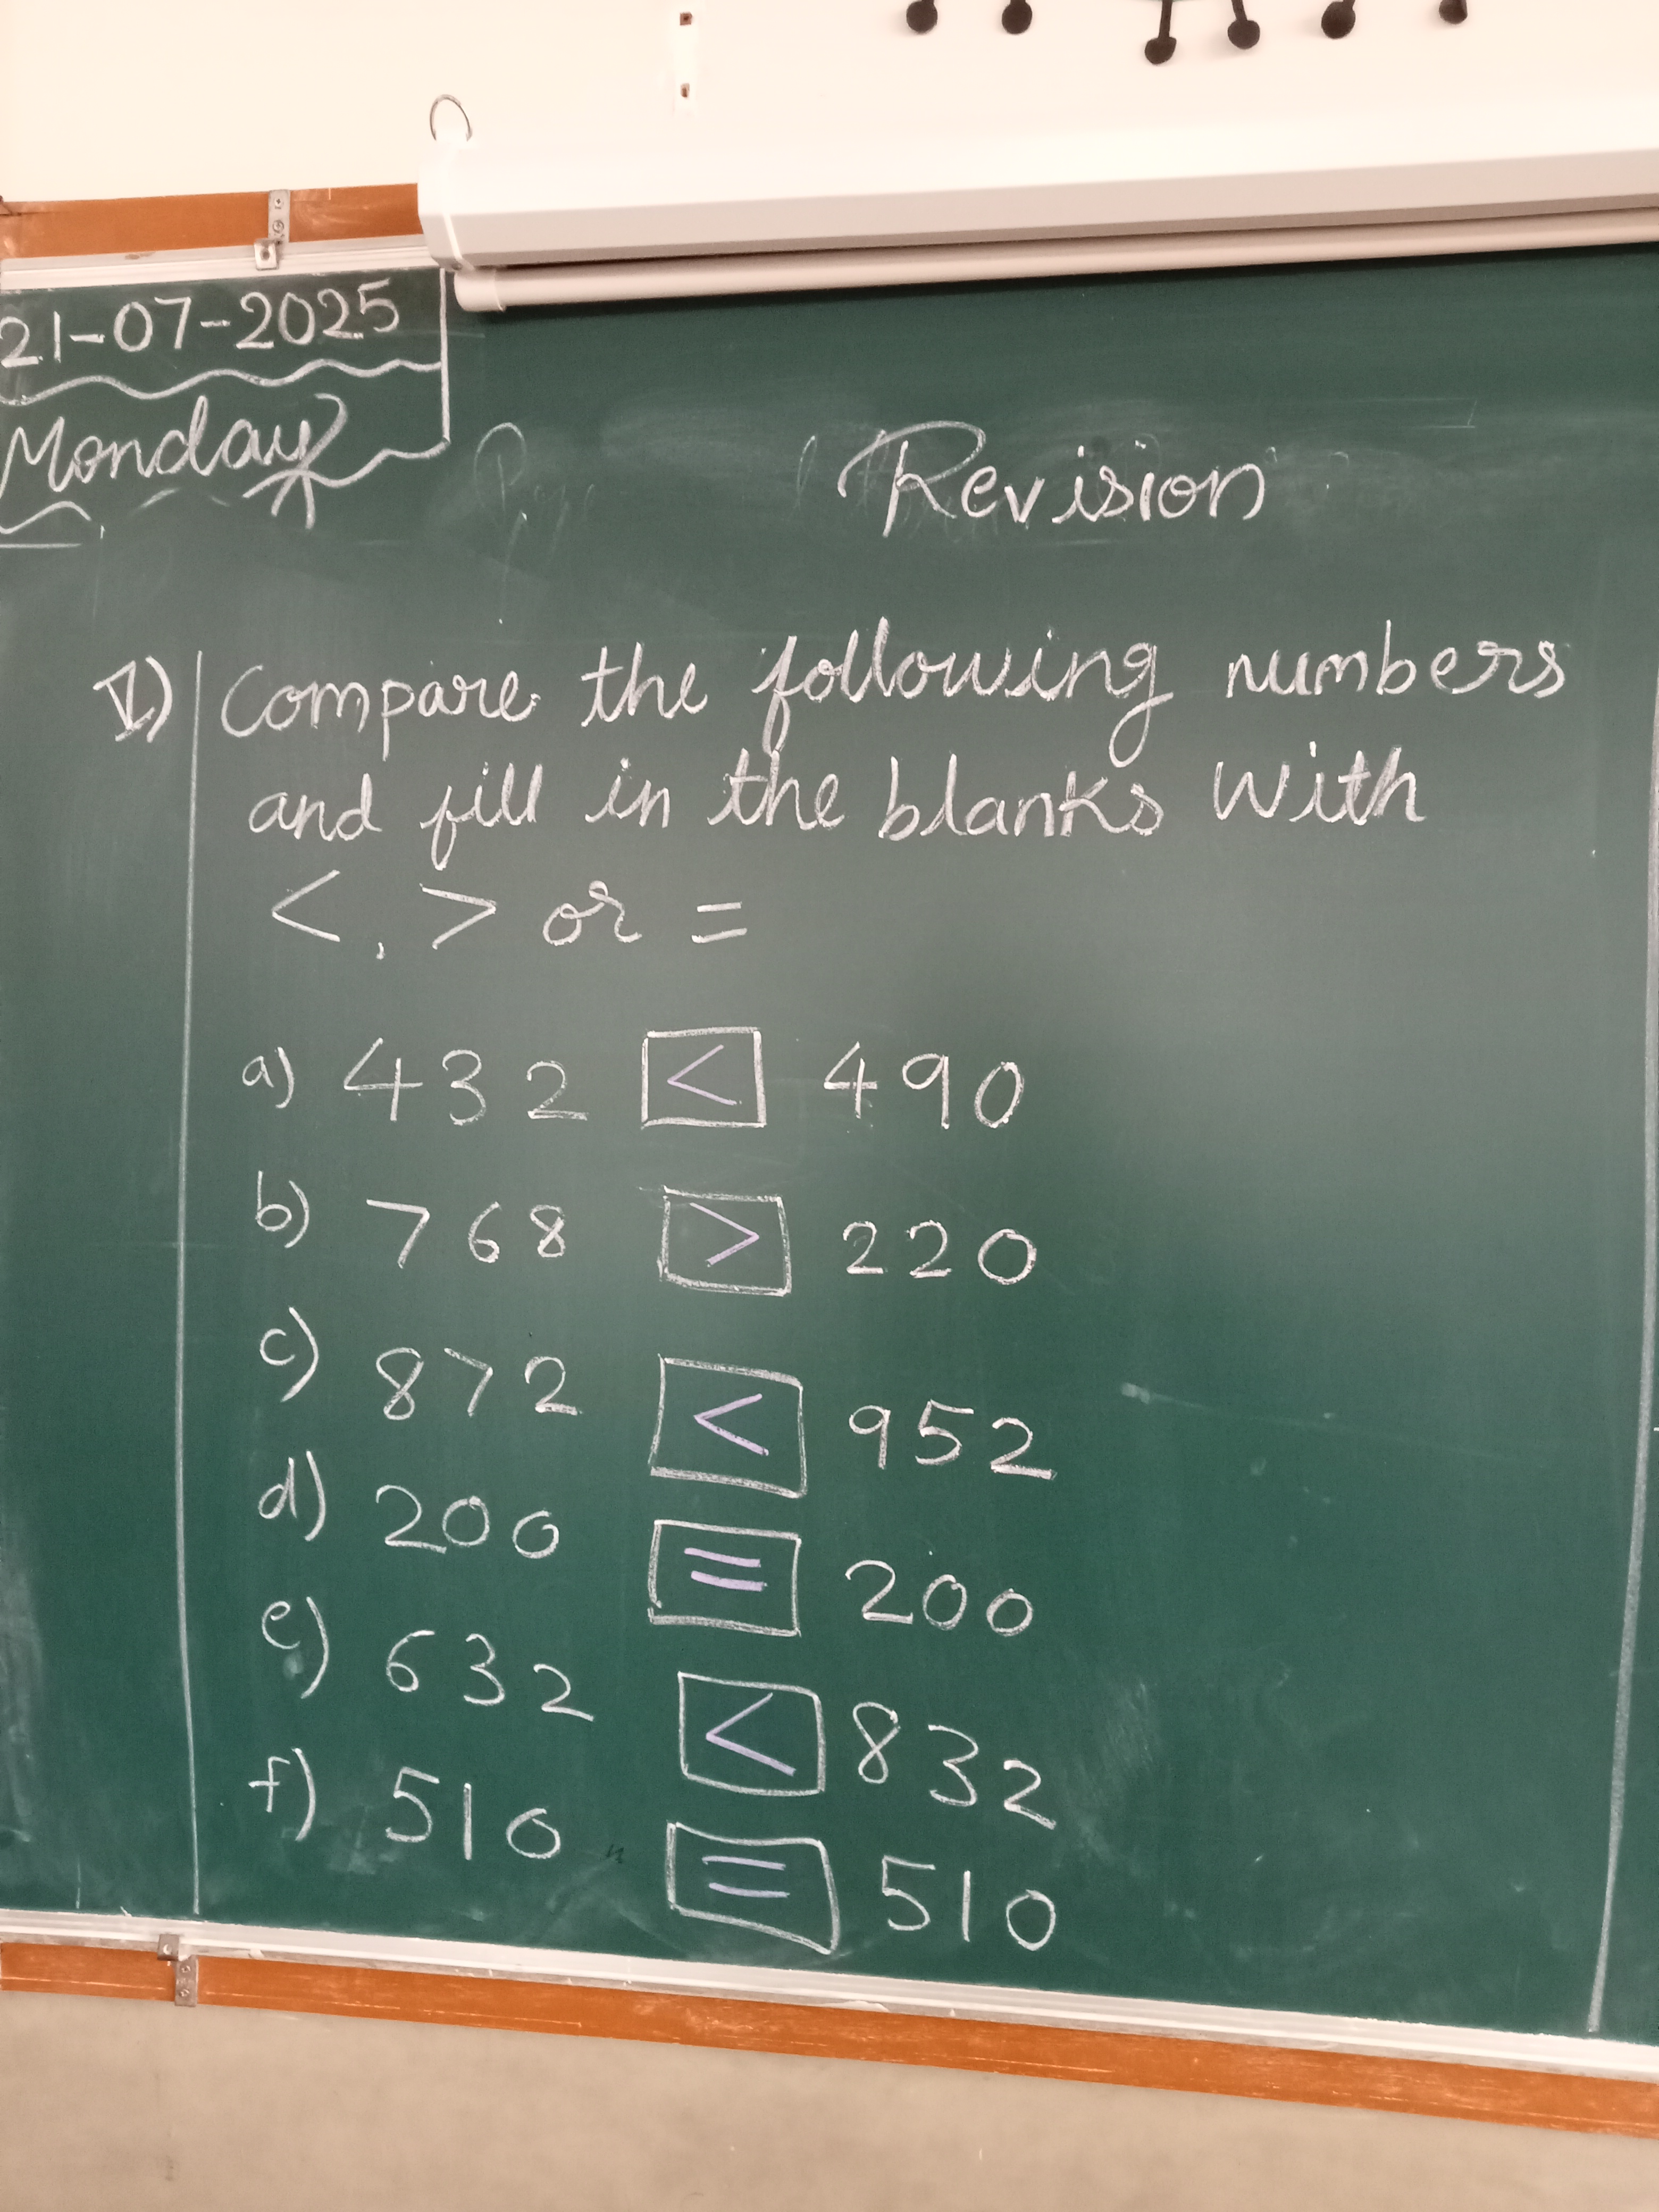 21-07-2025
Monday
Revision
I) Compare the following numbers
and fill in the blanks with
<, > or =
a) 432 < 490
b) 768 > 220
c) 872 < 952
d) 200 = 200
e) 632 < 832
f) 510 = 510